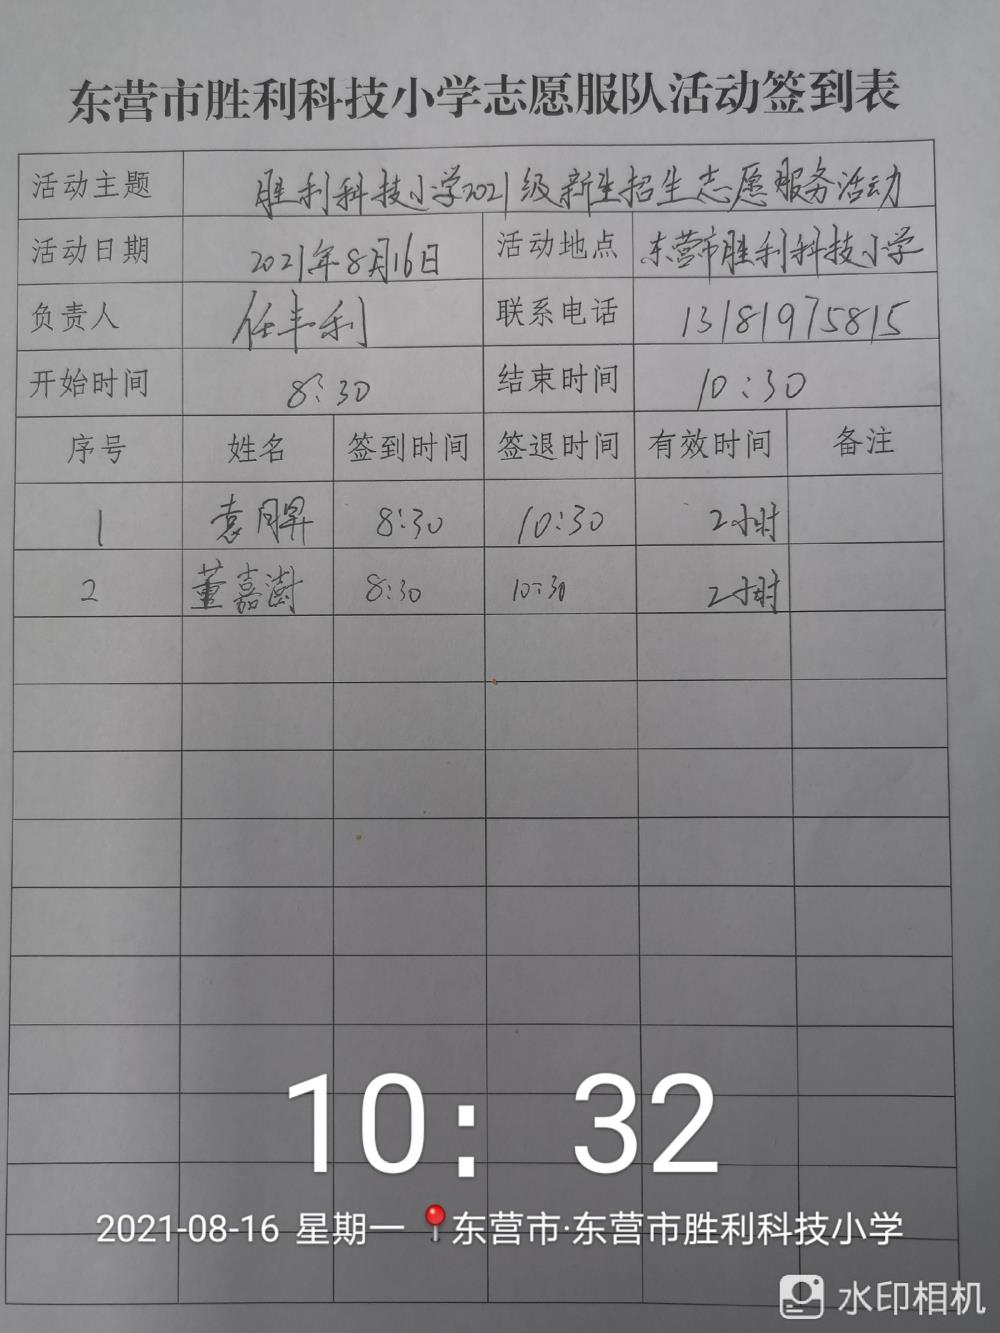 东营市胜利科技小学志愿服队活动签到表
活动主题 胜利科技小学2021级新生招生志愿服务活动
活动日期 2021年8月16日 活动地点 东营市胜利科技小学
负责人 任丰利 联系电话 13181975815
开始时间 8:30 结束时间 10:30
序号 姓名 签到时间 签退时间 有效时间 备注
1 袁 8:30 10:30 2小时
2 董嘉澍 8:30 10:30 2小时
10:32
2021-08-16 星期一 东营市·东营市胜利科技小学
水印相机